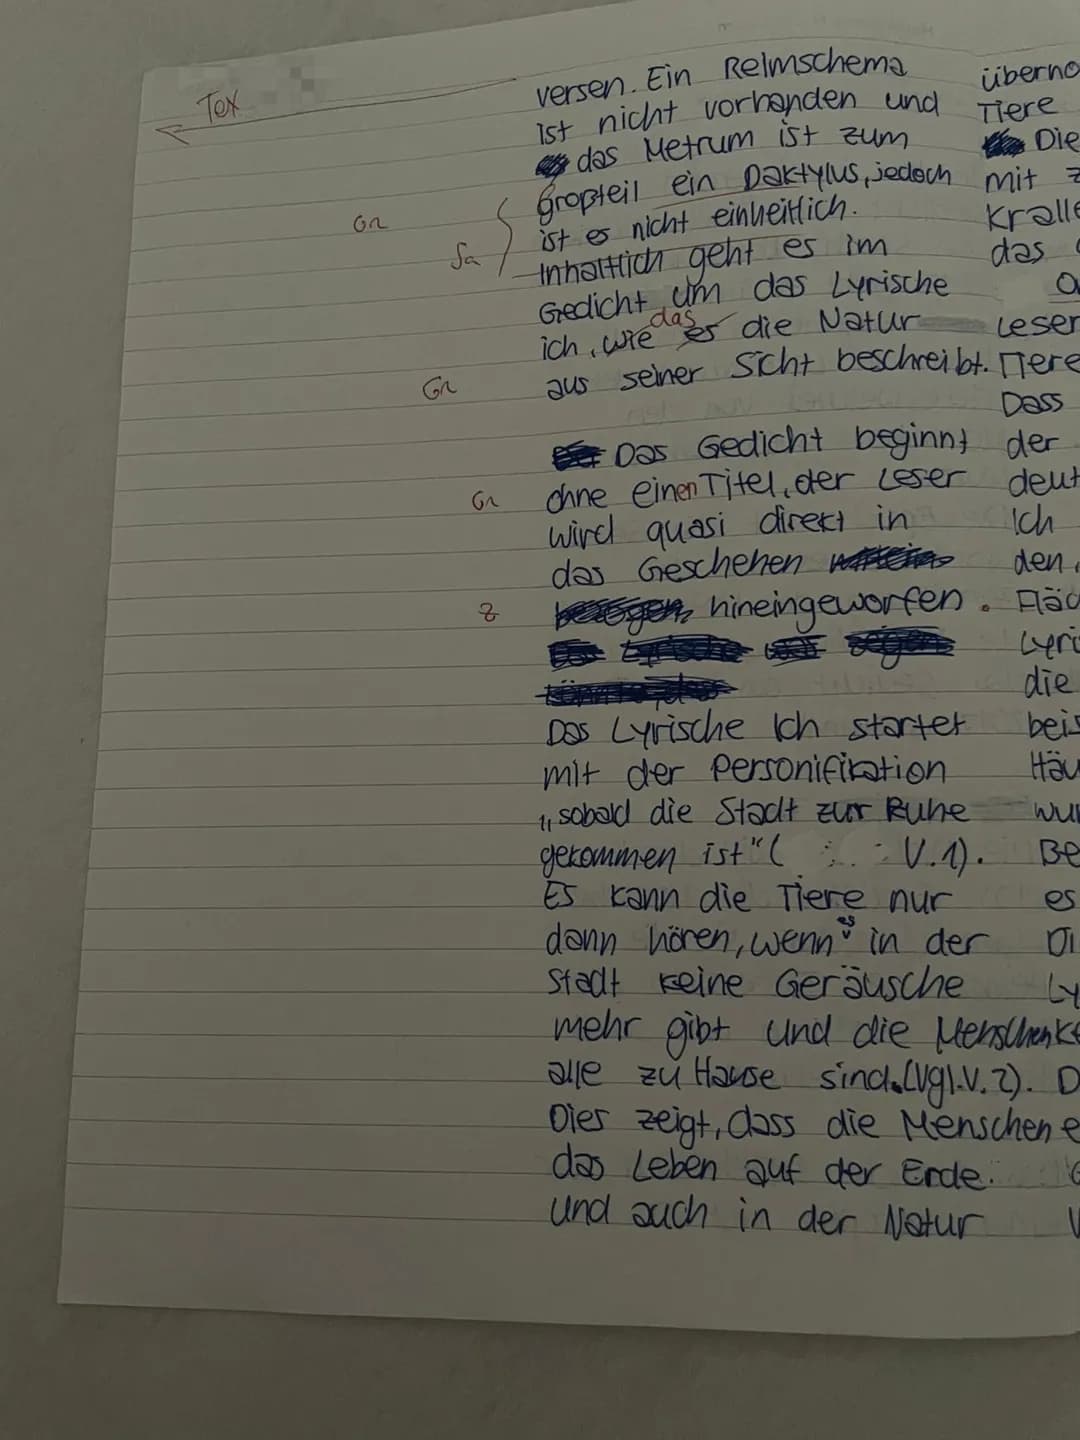 Tex
versen. Ein Reimschema
ist nicht vorhanden und
das Metrum ist zum
Gr
großteil ein Daktylus, jedoch
ist es nicht einheitlich.
Sa
Inhaltlich geht es im
Gedicht um das Lyrische
das
ich, wie es die Natur
Gr
aus seiner Sicht beschreibt.
Das Gedicht beginnt
Gr
ohne einen Titel, der Leser
wird quasi direkt in
das Geschehen
Z
hineingeworfen.
Das Lyrische Ich startet
mit der Personifikation
„sobald die Stadt zur Ruhe
gekommen ist" ( V.1).
Es kann die Tiere nur
dann hören, wenn es in der
Stadt keine Geräusche
mehr gibt und die Menschen
alle zu Hause sind. (Vgl. V. 2).
Dies zeigt, dass die Menschen
das Leben auf der Erde.
und auch in der Natur
überno
Tiere
Die
mit z
Kralle
das
Leser
Tiere
Dass
der
deut
Ich
den,
Fläc
Lyri
die
beis
Häu
wur
Be
es
Di
Ly